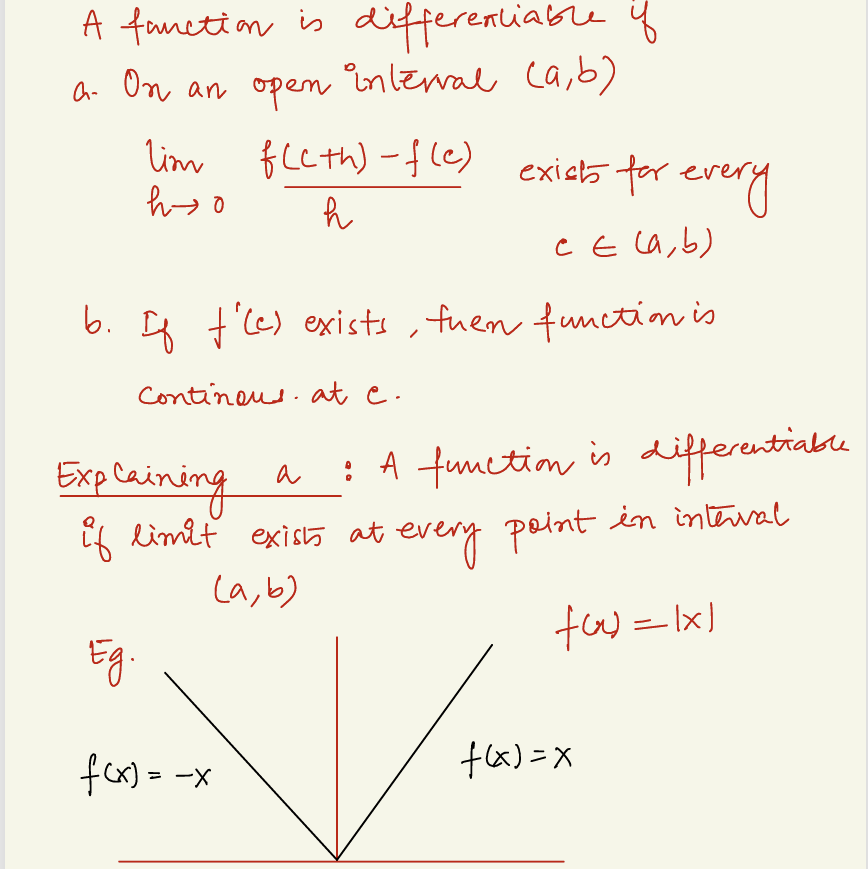 A function is differentiable if
a. On an open interval (a,b)
lim f(c+h) - f(c) exists for every
h→0 h
c ∈ (a,b)
b. If f'(c) exists, then function is
continous. at c.
Explaining a : A function is differentiable
if limit exists at every point in interval
(a,b)
f(x) = |x|
Eg.
f(x) = -x
f(x) = x